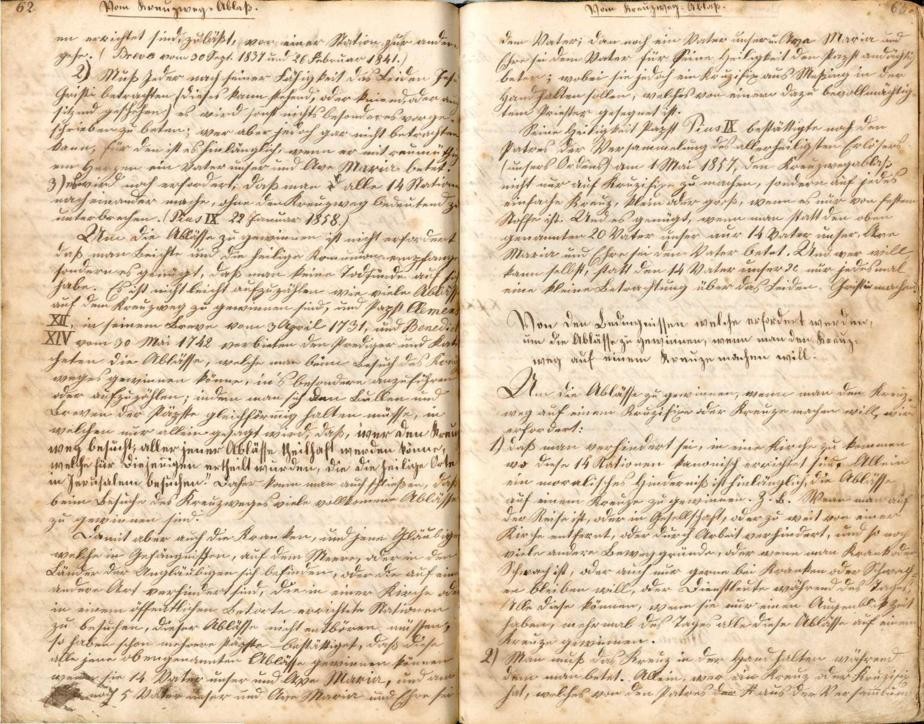 62.
Vom Kreuzweg-Ablaß.
en errichtet sind, zuläßt, von einer Station zur anderen
gehe. (Breve vom 30 Sept. 1837 und 26 Februar 1841.)
2) Muß jeder nach seiner Fähigkeit das Leiden
Christi betrachten (dieses kann stehend, oder knieend, oder
sitzend geschehen) es wird sonst nichts besonderes vorge-
schrieben zu beten; wer aber jedoch gar nicht betrachten
kann, für den ist es hinlänglich, wenn er mit reumüthig
em Herzen ein Vater unser und Ave Maria betet.
3) wird noch erfordert, daß man alle 14 Station
nacheinander mache, ohne den Kreuzweg bedeutend zu
unterbrechen. (Pius IX 22 Januar 1858.)
Um die Ablässe zu gewinnen ist nicht erfordert
daß man Beichte und die heilige Kommunion empfange
sondern es genügt, daß man keine Todsünde auf sich
habe. Es ist nicht leicht aufzuzählen wie viele Ablässe
auf dem Kreuzweg zu gewinnen sind, und Papst Clemens
XII, in seinem Breve vom 3 April 1731, und Benedict
XIV vom 30 Mai 1742 verbieten den Prediger und
heten die Ablässe, welche man beim Besuch des Kreuz
weges gewinnen könne, ins besondere anzuführen
oder aufzuzählen; indem man sich den Bullen und
Breven der Päpste gleichförmig halten müsse, in
welchen nur allein gesagt wird, daß, wer den Kreuz
weg besucht, aller jener Ablässe theilhaft werden könne,
welche für diejenigen ertheilt wurden, die die heilige Orte
in Jerusalem besuchen. Daher kann man auch schließen, daß
beim Besuche des Kreuzweges viele vollkommene Ablässe
zu gewinnen sind.
Damit aber auch die Kranken, und jene Gläubige
welche in Gefängnißen, auf dem Meere, oder in den
Länder der Ungläubigen sich befinden, oder die auf eine
andere Art verhindert sind, die in einer Kirche oder
in einem öffentlichen Betorte errichtete Stationen
zu besuchen, dieser Ablässe nicht entbehren müssen,
so haben schon mehrere Päpste bestättiget, daß diese
alle jene obengenannten Ablässe gewinnen können
wenn sie 14 Vater unser und Ave Maria, und am
noch 5 Vater unser und Ave Maria und Ehre sei
Vom Kreuzweg-Ablaß.
63.
dem Vater; dan noch ein Vater unser u. Ave Maria und
Ehre sei dem Vater für Seine Heiligkeit den Papst andächtig
beten; wobei sie jedoch ein Kruzifix aus Messing in der
Hand halten sollen, welches von einem dazu bevollmächtig
ten Priester gesegnet ist.
Seine Heiligkeit Papst Pius IX bestättigte noch den
Patres der Versammelung des allerheiligsten Erlösers
(unsers Ordens) am 1 Mai 1857, den Kreuzwegablaß
nicht nur auf Kruzifixe zu machen, sondern auf jedes
einfache Kreuz, klein oder groß, wenn es nur von festem
Stoffe ist. Und es genügt, wenn man statt den oben
genannten 20 Vater unser nur 14 Vater unser, Ave
Maria und Ehre sei dem Vater betet. Und wer will
kann selbst, statt den 14 Vater unser nur jedesmal
eine kleine Betrachtung über das Leiden Christi machen.
Von den Bedingnissen welche erfordert werden,
um die Ablässe zu gewinnen, wenn man den Kreuz-
weg auf einem Kreuze machen will.
Um die Ablässe zu gewinnen, wenn man den Kreuz-
weg auf einem Kruzifix oder Kreuze machen will, wird
erfordert:
1) daß man verhindert sei, in eine Kirche zu kommen
wo diese 14 Stationen kanonisch errichtet sind. Allein
ein moralisches Hinderniß ist hinlänglich, die Ablässe
auf einem Kreuze zu gewinnen. Z. B. Wenn man auf
der Reise ist, oder in Gesellschaft, oder zu weit von einer
Kirche entfernt, oder durch Arbeit verhindert, und so noch
viele andere Beweggründe, oder wenn man Krank oder
Schwach ist, oder auch nur gerne bei Kranken oder Schwach
en bleiben will, oder Dienstleute während des Tages.
Alle diese können, wenn sie nur einen Augenblick Zeit
haben, mehrmal des Tages alle diese Ablässe auf einem
Kreuze gewinnen.
2) Man muß das Kreuz in der Hand halten während
dem man betet. Allein, wer ein Kreuz oder Kruzifix
hat, welches von den Patres aus der Versammlung